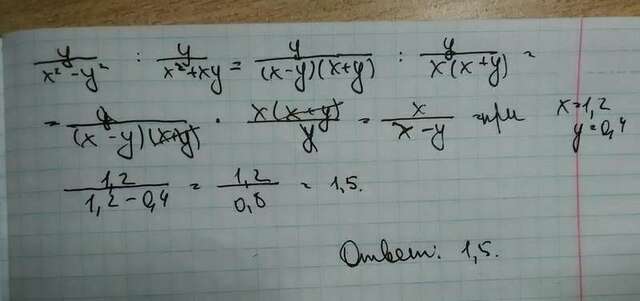 y/(x² - y²) : y/(x² + xy) = y/((x-y)(x+y)) : y/(x(x+y)) =
= y/((x-y)(x+y)) · x(x+y)/y = x/(x-y) = при x=1,2
y=0,4
1,2/(1,2-0,4) = 1,2/0,8 = 1,5.
Ответ: 1,5.